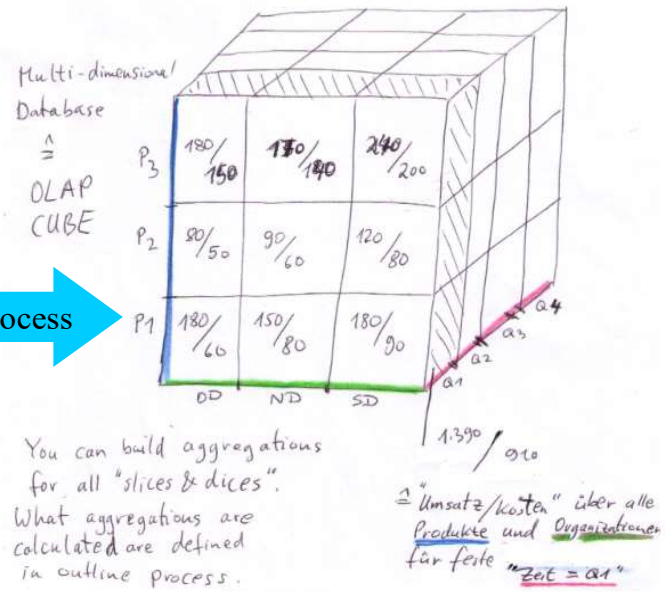 Multi-dimensional
Database
≙
OLAP
CUBE
P3 180/150 170/140 240/200
P2 80/50 90/60 120/80
ocess
P1 180/60 150/80 180/90
OD ND SD
Q1 Q2 Q3 Q4
1.390/910
You can build aggregations
for all "slices & dices".
What aggregations are
calculated are defined
in outline process.
≙ "Umsatz/Kosten" über alle
Produkte und Organizationen
für feste "Zeit = Q1"